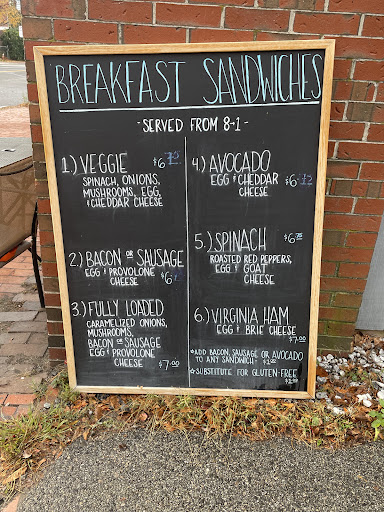 BREAKFAST SANDWICHES
- SERVED FROM 8-1 -
1.) VEGGIE
SPINACH, ONIONS,
MUSHROOMS, EGG,
& CHEDDAR CHEESE
2.) BACON OR SAUSAGE
EGG & PROVOLONE
CHEESE
3.) FULLY LOADED
CARAMELIZED ONIONS,
MUSHROOMS,
BACON OR SAUSAGE
EGG & PROVOLONE
CHEESE $7.00
4.) AVOCADO
EGG & CHEDDAR
CHEESE
5.) SPINACH $6.75
ROASTED RED PEPPERS,
EGG & GOAT
CHEESE
6.) VIRGINIA HAM
EGG & BRIE CHEESE
$7.00
*ADD BACON, SAUSAGE OR AVOCADO
TO ANY SANDWICH - $2.00
*SUBSTITUTE FOR GLUTEN-FREE